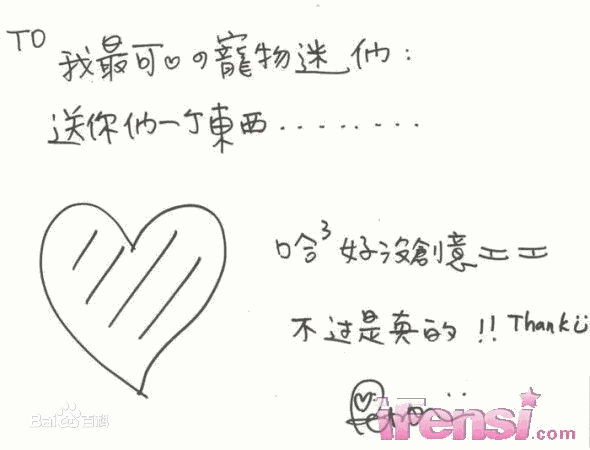 TO
我最可♡の寵物迷们:
送你们一个東西........
哈³ 好沒創意==
不过是真的!! Thank
Bai百科
iFensi.com